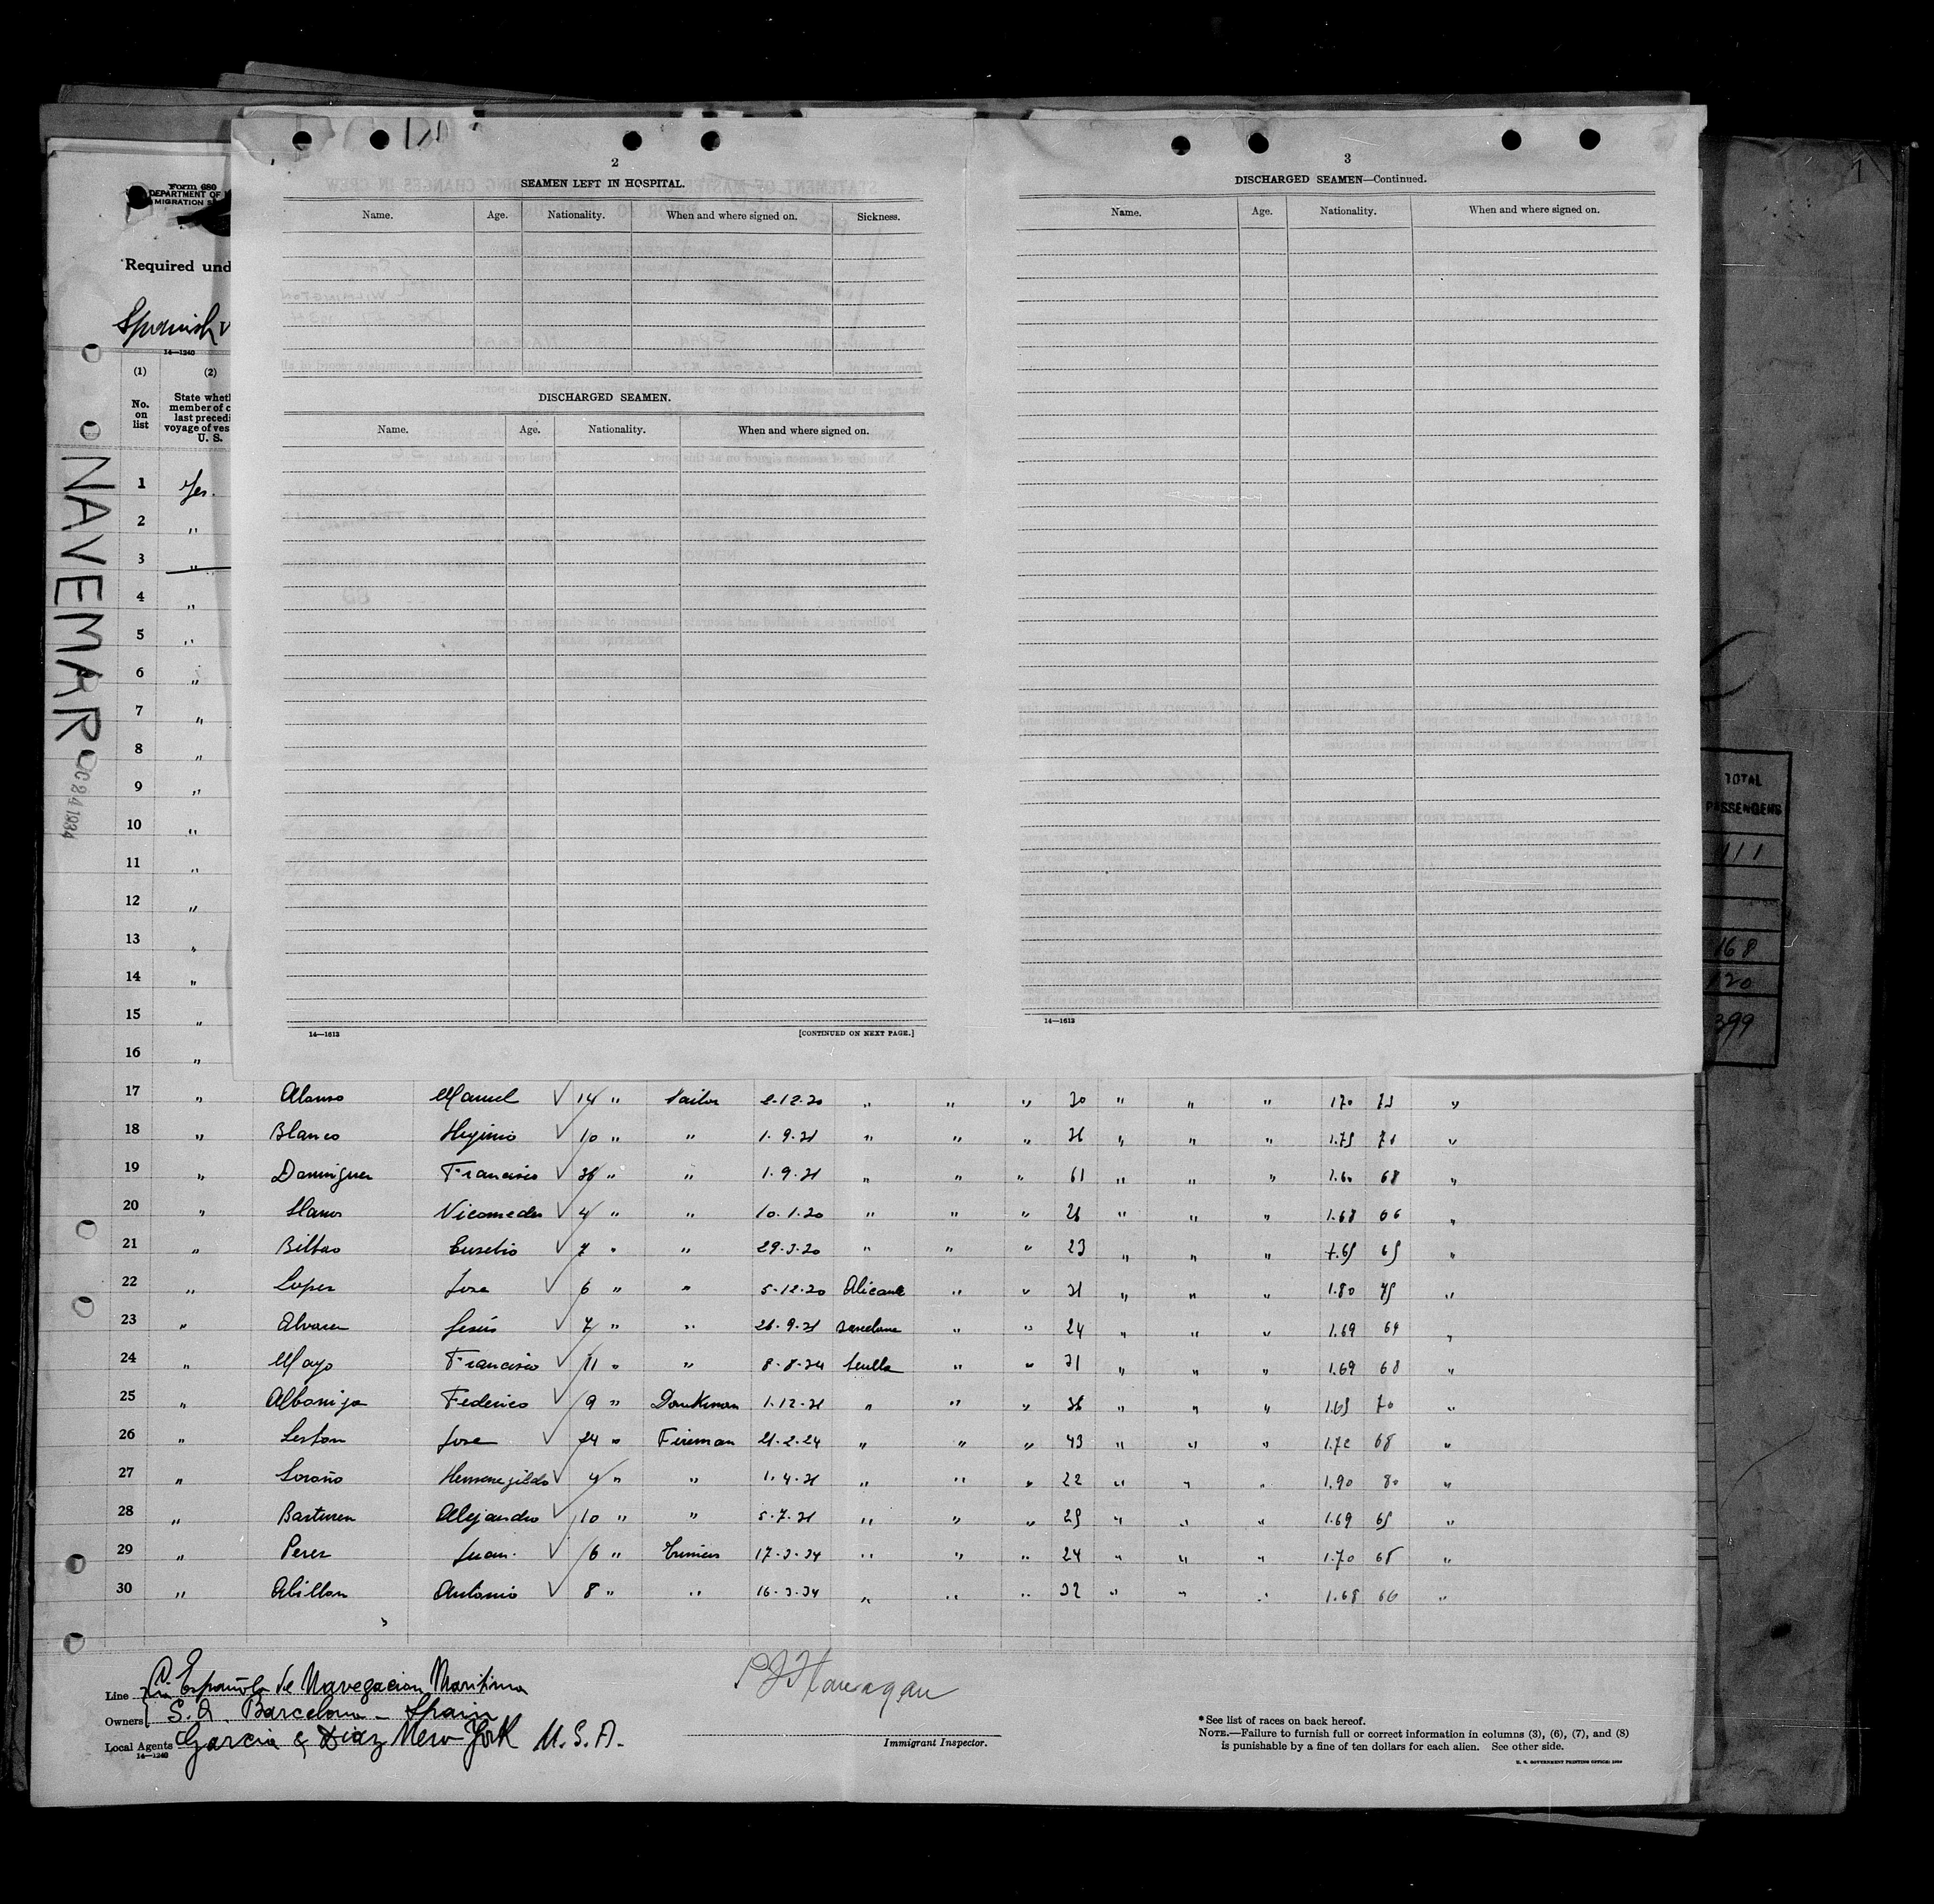 Form 680
DEPARTMENT OF
MIGRATION S
Required und
Spanish
14—1240
(1) (2)
No. on list
State wheth
member of c
last precedi
voyage of ves
U. S.
NAVEMAR
1 Yes.
2 "
3 "
4 "
5 "
6 "
7 "
8 "
9 "
10 "
11 "
12 "
13 "
14 "
15 "
16 "
2
SEAMEN LEFT IN HOSPITAL.
Name. Age. Nationality. When and where signed on. Sickness.
DISCHARGED SEAMEN.
Name. Age. Nationality. When and where signed on.
14—1613 [CONTINUED ON NEXT PAGE.]
3
DISCHARGED SEAMEN—Continued.
Name. Age. Nationality. When and where signed on.
14—1613
TOTAL
PASSENGERS
111
168
120
399
17 " Alonso Manuel 14 " Sailor 2-12-20 " " " 30 " " " 170 73 "
18 " Blanco Higinio 10 " " 1-9-31 " " " 36 " " " 1.75 71 "
19 " Dominguez Francisco 36 " " 1-9-31 " " " 61 " " " 1.60 68 "
20 " Llanos Nicomedes 4 " " 10-1-20 " " " 26 " " " 1.68 66 "
21 " Bilbao Eusebio 7 " " 29-3-20 " " " 23 " " " 1.65 65 "
22 " Lopez Jose 6 " " 5-12-20 Alicante " " 31 " " " 1.80 75 "
23 " Alvarez Jesús 7 " " 26-9-31 Barcelona " " 24 " " " 1.69 64 "
24 " Mayo Francisco 11 " " 8-8-34 Sevilla " " 31 " " " 1.69 68 "
25 " Albóniga Federico 9 " Donkiman 1-12-31 " " " 36 " " " 1.65 70 "
26 " Leston Jose 24 " Fireman 21-2-24 " " " 43 " " " 1.72 68 "
27 " Loroño Hermenegildo 4 " " 1-4-31 " " " 22 " " " 1.90 80 "
28 " Basturen Alejandro 10 " " 5-7-31 " " " 25 " " " 1.69 65 "
29 " Perez Juan. 6 " 17-3-34 " " " 24 " " " 1.70 65 "
30 " Abillon Antonio 8 " " 16-3-34 " " " 32 " " " 1.68 66 "
Line Cia Española de Navegacion Maritima
Owners S.A. Barcelona - Spain
Local Agents Garcia & Diaz New York U.S.A.
14—1240
P J Flanagan
Immigrant Inspector.
*See list of races on back hereof.
NOTE.—Failure to furnish full or correct information in columns (3), (6), (7), and (8)
is punishable by a fine of ten dollars for each alien. See other side.
U. S. GOVERNMENT PRINTING OFFICE